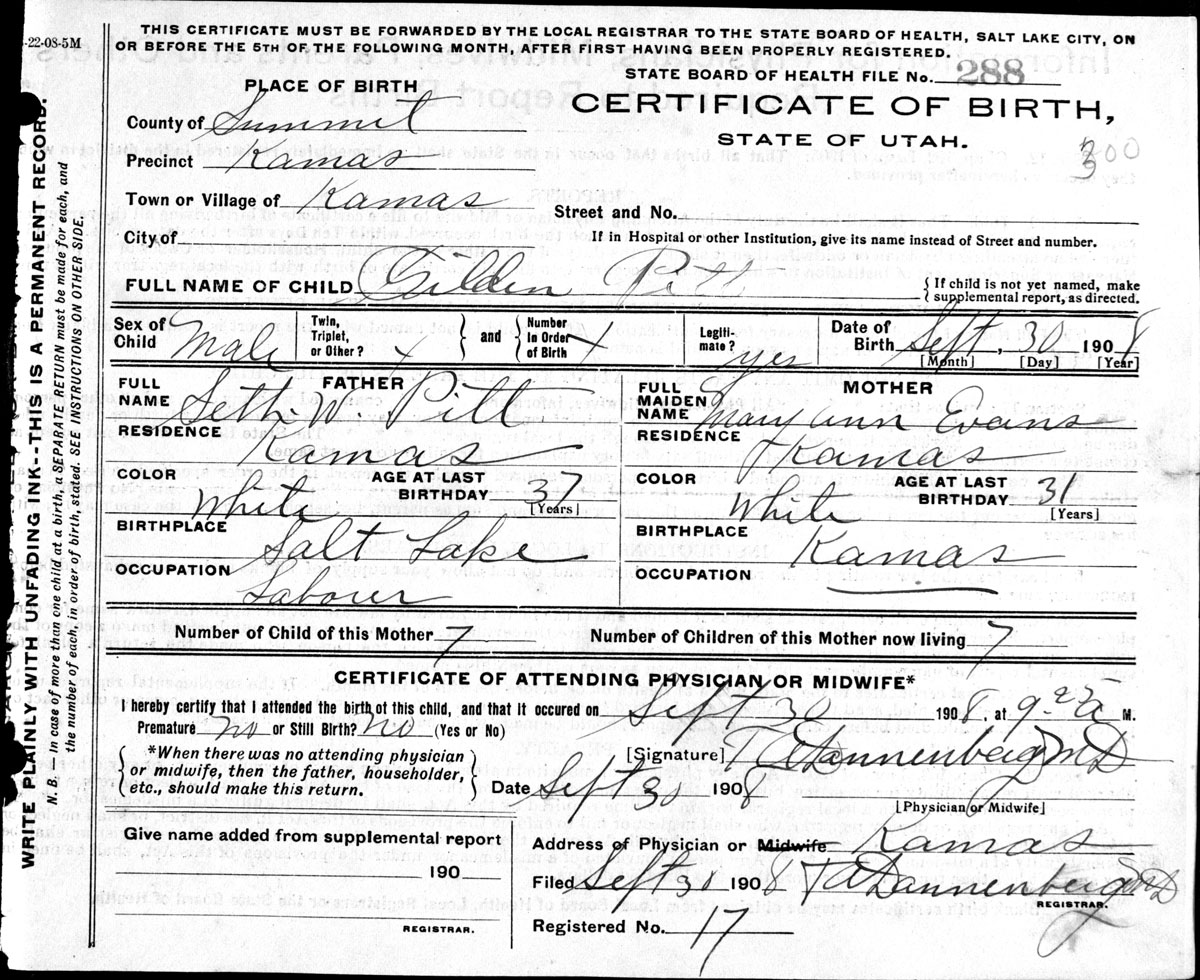 -22-08-5M
THIS CERTIFICATE MUST BE FORWARDED BY THE LOCAL REGISTRAR TO THE STATE BOARD OF HEALTH, SALT LAKE CITY, ON
OR BEFORE THE 5TH OF THE FOLLOWING MONTH, AFTER FIRST HAVING BEEN PROPERLY REGISTERED.
STATE BOARD OF HEALTH FILE No. 288
PLACE OF BIRTH
CERTIFICATE OF BIRTH,
STATE OF UTAH.
County of Summit
Precinct Kamas
Town or Village of Kamas
Street and No.
City of
If in Hospital or other Institution, give its name instead of Street and number.
FULL NAME OF CHILD Tilden Pitt
{If child is not yet named, make
supplemental report, as directed.
Sex of Child Male
Twin, Triplet, or Other? x } and { Number In Order of Birth x
Legiti-mate? yes
Date of Birth Sept, 30 1908
[Month] [Day] [Year]
FATHER
FULL NAME Seth W. Pitt
RESIDENCE Kamas
COLOR White
AGE AT LAST BIRTHDAY 37
[Years]
BIRTHPLACE Salt Lake
OCCUPATION Labour
MOTHER
FULL MAIDEN NAME Mary Ann Evans
RESIDENCE Kamas
COLOR White
AGE AT LAST BIRTHDAY 31
[Years]
BIRTHPLACE Kamas
OCCUPATION
Number of Child of this Mother 7
Number of Children of this Mother now living 7
CERTIFICATE OF ATTENDING PHYSICIAN OR MIDWIFE*
I hereby certify that I attended the birth of this child, and that it occured on Sept 30 1908, at 9-25 a M.
Premature no or Still Birth? no (Yes or No)
{*When there was no attending physician
or midwife, then the father, householder,
etc., should make this return.}
[Signature] Dannenberg MD
Date Sept 30 1908
[Physician or Midwife]
Give name added from supplemental report
190
REGISTRAR.
Address of Physician or Midwife Kamas
Filed Sept 30 1908 Dannenberg MD
REGISTRAR.
Registered No. 17
WRITE PLAINLY WITH UNFADING INK--THIS IS A PERMANENT RECORD.
N. B. In case of more than one child at a birth, a SEPARATE RETURN must be made for each, and
the number of each, in order of birth, stated. SEE INSTRUCTIONS ON OTHER SIDE.